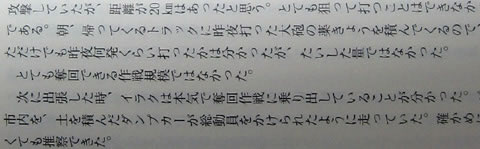 攻撃していたが、距離が20 kmはあったと思う。とても狙って打つことはできなか
である。朝、帰ってくるトラックに昨夜打った大砲の薬きょうを積んでくるので、
ただけでも昨夜何発くらい打ったかは分かったが、たいした量ではなかった。
とても奪回できる作戦規模ではなかった。
次に出張した時、イラクは本気で奪回作戦に乗り出していることが分かった。
市内を、土を積んだダンプカーが総動員をかけられたように走っていた。確かめに
くても推察できた。